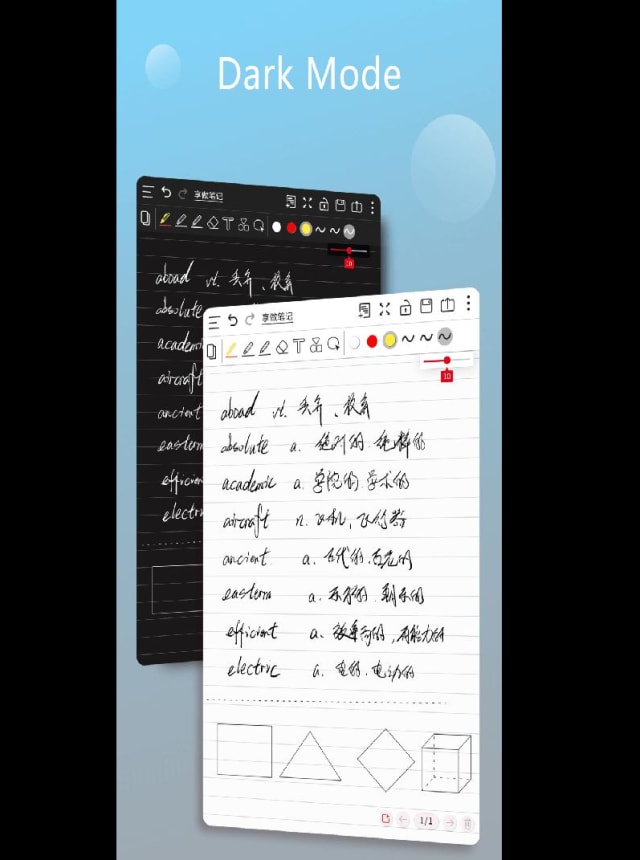 Dark Mode
享做笔记
10
aboad vt. 丢弃、放弃
absolute
academic
aircraft
ancient
eastern
efficien
electric
享做笔记
10
aboad vt. 丢弃、放弃
absolute a. 绝对的、纯粹的
academic a. 学院的、学术的
aircraft n. 飞机，飞行器
ancient a. 古代的、古老的
eastern a. 东方的、朝东的
efficient a. 效率高的，有能力的
electric a. 电的、电动的
1/1